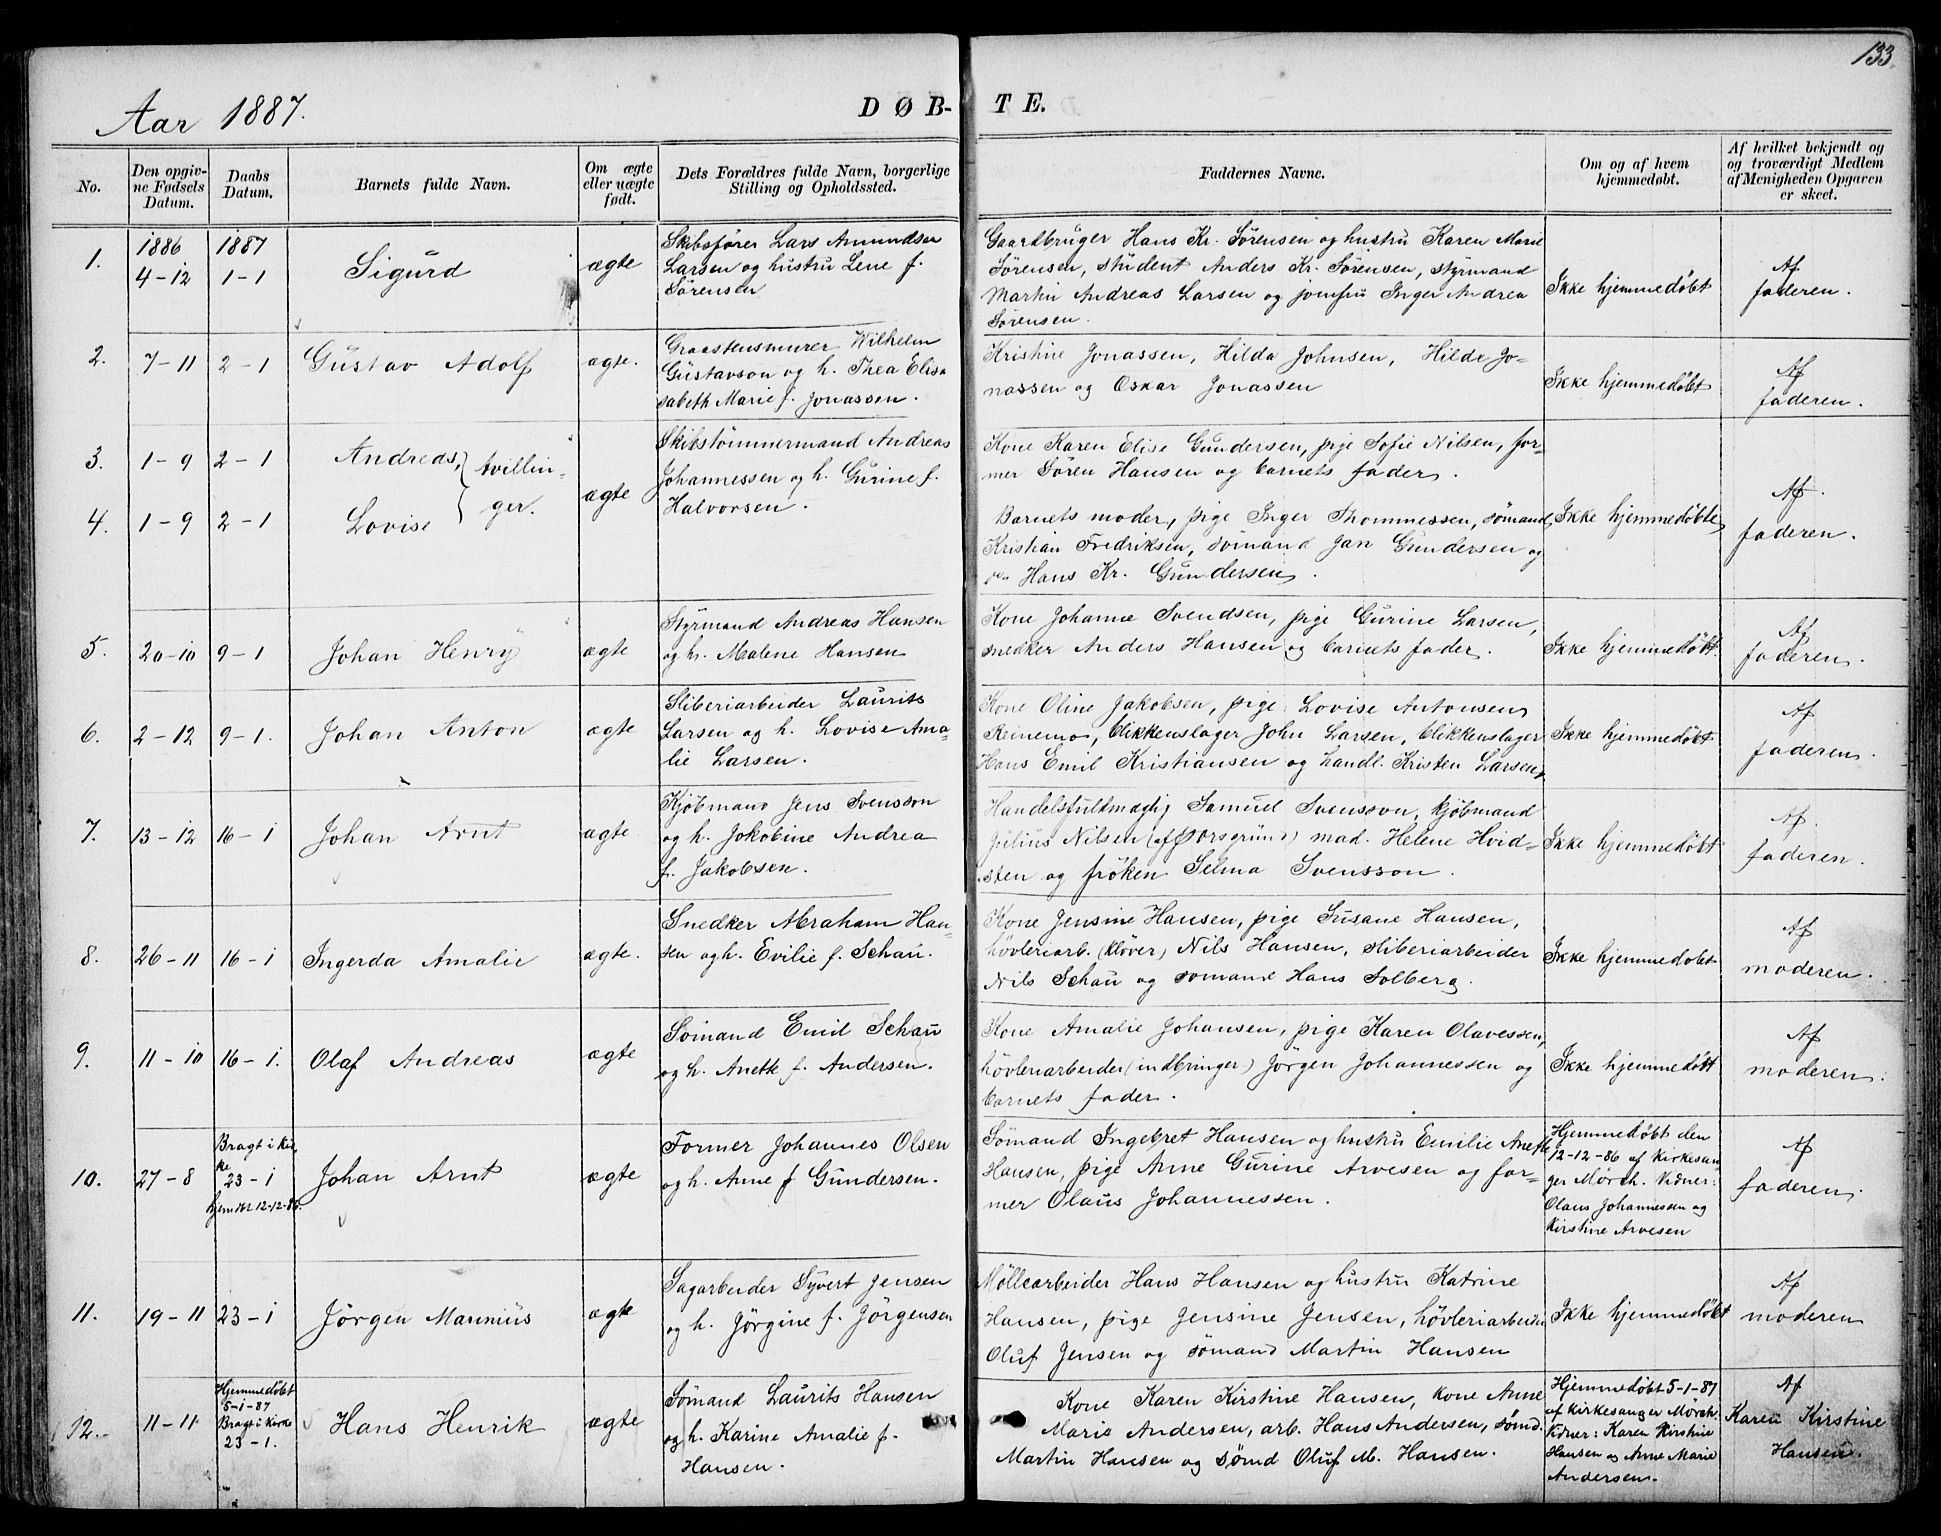 133.
Aar 1887.
DØB-
TE.
No.
Den opgiv-
ne Fødsels
Datum.
Daabs
Datum.
Barnets fulde Navn.
Om ægte
eller uægte
født.
Dets Forældres fulde Navn, borgerlige
Stilling og Opholdssted.
Faddernes Navne.
Om og af hvem
hjemmedøbt.
Af hvilket bekjendt og
og troværdigt Medlem
af Menigheden Opgaven
er skeet.
1.
1886
4-12
1887
1-1
Sigurd
ægte
Skibsfører Lars Amundsen
Larsen og hustru Lene f.
Sørensen
Gaardbruger Hans Kr. Sørensen og hustru Karen Marie
Sørensen, student Anders Kr. Sørensen, styrmand
Martin Andreas Larsen og jomfru Inger Andrea
Sørensen.
Ikke hjemmedøbt
Af
faderen.
2.
7-11
2-1
Gustav Adolf
ægte.
Graastensmurer Wilhelm
Gustavson og h. Thea Elisa
sabeth Marie f. Jonassen.
Kristine Jonassen, Hilda Johnsen, Hilda Jo-
nassen og Oskar Jonassen
Ikke hjemmedøbt
Af
faderen.
3.
1-9
2-1
Andreas, tvillin-
4.
1-9
2-1
Lovise ger.
ægte
Skibstømmermand Andreas
Johannessen og h. Gurine f.
Halvorsen.
Kone Karen Elise Gundersen, pige Sofie Nilsen, for-
mer Søren Hansen og barnets fader.
Barnets moder, pige Inger Thommessen, sømand
Kristian Fredriksen, sømand Jan Gundersen og
Hans Kr. Gundersen.
Ikke hjemmedøbte
Af
faderen.
5.
20-10
9-1
Johan Henry
ægte
Styrmand Andreas Hansen
og h. Malene Hansen
Kone Johanne Svendsen, pige Gurine Larsen,
snedker Anders Hansen og barnets fader.
Ikke hjemmedøbt.
Af
faderen.
6.
2-12
9-1.
Johan Anton
ægte
Sliberiarbeider Laurits
Larsen og h. Lovise Ama-
lie Larsen.
Kone Oline Jakobsen, pige Lovise Antonsen
Reinemo, blikkenslager John Larsen, blikkenslager
Hans Emil Kristiansen og handl. Kristen Larsen.
Ikke hjemmedøbt
Af
faderen.
7.
13-12
16-1
Johan Arnt
ægte
Kjøbmand Jens Svensson
og h. Jakobine Andrea
f. Jakobsen.
Handelsfuldmægtig Samuel Svensson, kjøbmand
Julius Nilsen (af Porsgrund) mad. Helene Hvid-
sten og frøken Selma Svensson.
Ikke hjemmedøbt
Af
faderen.
8.
26-11
16-1
Ingerda Amalie
ægte.
Snedker Abraham Han-
sen og h. Evilie f. Schau.
Kone Jensine Hansen, pige Susane Hansen,
høvleriarb. (kløver) Nils Hansen, sliberiarbeider
Nils Schau og sømand Hans Solberg.
Ikke hjemmedøbt
Af
moderen.
9.
11-10
16-1.
Olaf Andreas
ægte
Sømand Emil Schau
og h. Anette f. Andersen.
Kone Amalie Johansen, pige Karen Olavessen,
høvleriarbeider (indbringer) Jørgen Johannessen og
barnets fader.
Ikke hjemmedøbt
Af
moderen.
10.
27-8
Bragt i kir
ke
23-1
hjem 12-12-86.
Johan Arnt
ægte
Former Johannes Olsen
og h. Anne f Gundersen.
Sømand Ingebret Hansen og hustru Emilie Anette
Hansen, pige Anne Gurine Arvesen og for-
mer Olaus Johannessen.
Hjemmedøbt den
12-12-86 af kirkesan
ger Mørch. Vidner:
Olaus Johannessen og
Kirstine Arvesen
Af
faderen.
11.
19-11
23-1
Jørgen Marinius
ægte
Sagarbeider Syvert Jensen
og h. Jørgine f. Jørgensen
Møllearbeider Hans Hansen og hustru Katrine
Hansen, pige Jensine Jensen, høvleriarbeider
Oluf Jensen og sømand Martin Hansen
Ikke hjemmedøbt
Af
moderen
12.
11-11
Hjemmedøbt
5-1-87
Bragt i kirke
23-1.
Hans Henrik
ægte
Sømand Laurits Hansen
og h. Karine Amalie f.
Hansen.
Kone Karen Kirstine Hansen, kone Anne
Marie Andersen, arb. Hans Andersen, sømd.
Martin Hansen og sømd Oluf M. Hansen.
Hjemmedøbt 5-1-87
af kirkesanger Mørch.
Vidner: Karen Kirstine
Hansen og Anne Marie
Andersen.
Af
Karen Kirstine
Hansen.